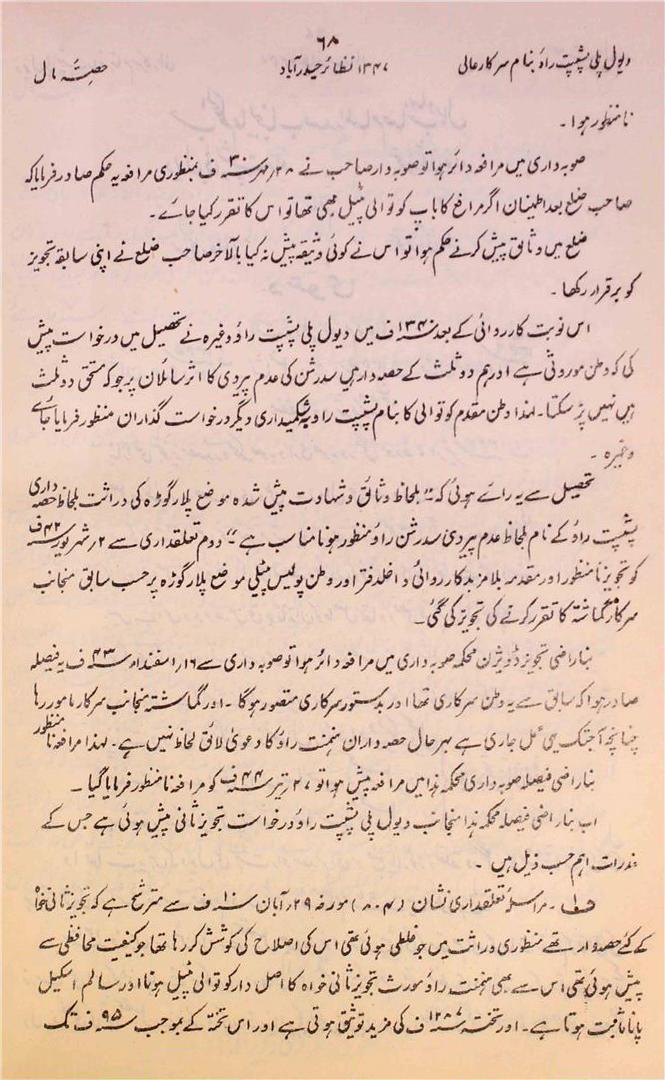 ۶۸
دیول پلی پشپت راؤ بنام سرکار عالی ۱۳۴۷ نظائر حیدرآباد حصہ مال
نامنظور ہوا۔
صوبہ داری میں مرافعہ دائر ہوا تو صوبہ دار صاحب نے ۲۸؍مہر ۳۰ ف بمنظوری مرافعہ یہ حکم صادر فرمایا کہ
صاحب ضلع بعد اطمینان اگر مرافع کا باپ کوتوالی پٹیل بھی تھا تو اس کا تقرر کیا جائے۔
ضلع میں وثائق پیش کرنے حکم ہوا تو اس نے کوئی وثیقہ پیش نہ کیا بالآخر صاحب ضلع نے اپنی سابقہ تجویز
کو برقرار رکھا۔
اس نوبت کارروائی کے بعد ۱۳۴۰ ف میں دیول پلی پشپت راؤ وغیرہ نے تحصیل میں درخواست پیش
کی کہ وطن موروثی ہے اور ہم دو ثلث کے حصہ دار ہیں سدرشن کی عدم پیروی کا اثر سائلان پر جو کہ مستحق دو ثلث
ہیں نہیں پڑ سکتا۔ لہذا وطن مقدم کوتوالی کا بنام پشپت راؤ بہ شکمیداری دیگر درخواست گذاران منظور فرمایا جائے
وغیرہ۔
تحصیل سے یہ رائے ہوئی کہ "بلحاظ وثائق و شہادت پیش شدہ موضع پلارگوڑہ کی وراثت بلحاظ حصہ داری
پشپت راؤ کے نام بلحاظ عدم پیروی سدرشن راؤ منظور ہونا مناسب ہے" دوم تعلقداری سے ۲؍شہریور ۴۲ ف
کو تجویز نامنظور اور مقدمہ بلا مزید کارروائی داخلدفتر اور وطن پولیس پٹیلی موضع پلارگوڑہ پر حسب سابق منجانب
سرکار گماشتہ کا تقرر کرنے کی تجویز کی گئی۔
بناراضی تجویز ڈویژن محکمہ صوبہ داری میں مرافعہ دائر ہوا تو صوبہ داری سے ۱۶؍اسفندار ۴۳ ف یہ فیصلہ
صادر ہوا کہ سابق سے یہ وطن سرکاری تھا اور بدستور سرکاری متصور ہوگا۔ اور گماشتہ منجانب سرکار مامور رہا
چنانچہ آجتک یہی عمل جاری ہے بہرحال حصہ داران ہنمنت راؤ کا دعویٰ لائق لحاظ نہیں ہے۔ لہذا مرافعہ نامنظور
بناراضی فیصلہ صوبہ داری محکمہ ہذا میں مرافعہ پیش ہوا تو ۲۷؍تیر ۴۴ ف کو مرافعہ نامنظور فرمایا گیا۔
اب بناراضی فیصلہ محکمہ ہذا منجانب دیول پلی پشپت راؤ درخواست تجویز ثانی پیش ہوئی ہے جس کے
عذرات اہم حسب ذیل ہیں۔
ف۱۔ مراسلہ تعلقداری نشان (۸۰۴) مورخہ ۲۹؍آبان ۱۰ ف سے مترشح ہے کہ تجویز ثانی خواہ
کے کئے حصہ دار تھے منظوری وراثت میں جو غلطی ہوئی تھی اس کی اصلاح کی کوشش کر رہا تھا جو کیفیت محافظی سے
پیش ہوئی تھی اس سے بھی ہنمنت راؤ مورث تجویز ثانی خواہ کا اصل دار کوتوالی پٹیل ہونا اور سالم اسکیل
پانا ثابت ہوتا ہے۔ اور تختہ ۱۲۸۷ ف کی مزید توثیق ہوتی ہے اور اس تختہ کے بموجب ۹۵ ف تک